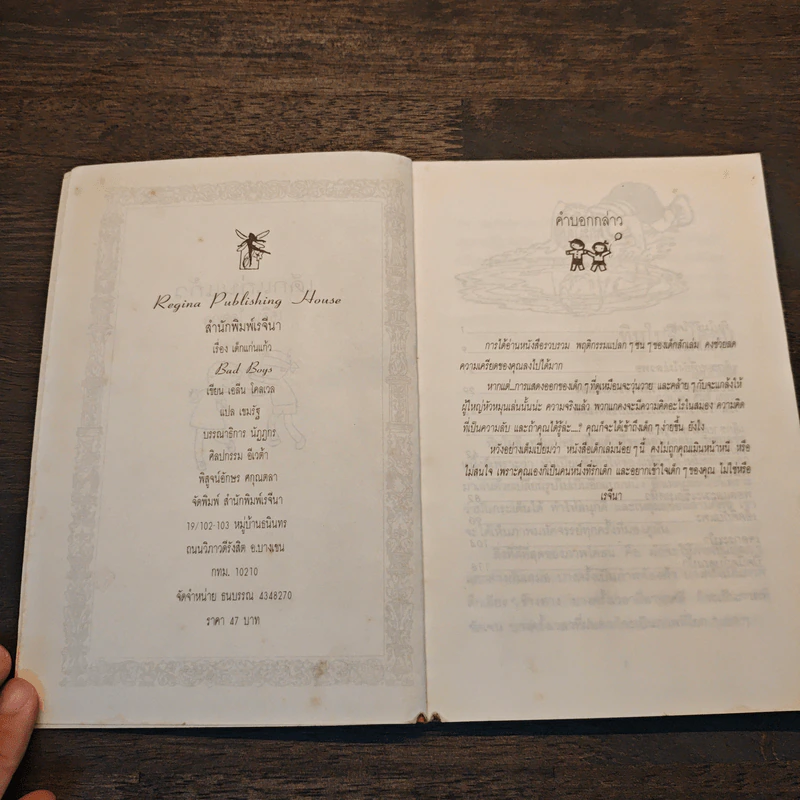 Regina Publishing House
สำนักพิมพ์เรจีนา
เรื่อง เด็กแก่นแก้ว
Bad Boys
เขียน เอลีน โคลเวล
แปล เขมรัฐ
บรรณาธิการ นัฏฏกร
ศิลปกรรม อีเวต้า
พิสูจน์อักษร ศกุณตลา
จัดพิมพ์ สำนักพิมพ์เรจีนา
19/102-103 หมู่บ้านธนินทร
ถนนวิภาวดีรังสิต อ.บางเขน
กทม. 10210
จัดจำหน่าย ธนบรรณ 4348270
ราคา 47 บาท
คำบอกกล่าว
การได้อ่านหนังสือรวบรวม พฤติกรรมแปลก ๆ ซน ๆ ของเด็กสักเล่ม คงช่วยลด
ความเครียดของคุณลงไปได้มาก
หากแต่...การแสดงออกของเด็ก ๆ ที่ดูเหมือนจะวุ่นวาย และคล้าย ๆ กับจะแกล้งให้
ผู้ใหญ่หัวหมุนเล่นนั้นน่ะ ความจริงแล้ว พวกแกคงจะมีความคิดอะไรในสมอง ความคิด
ที่เป็นความลับ และถ้าคุณได้รู้ล่ะ....? คุณก็จะได้เข้าถึงเด็ก ๆ ง่ายขึ้น ยังไง
หวังอย่างเต็มเปี่ยมว่า หนังสือเด็กเล่มน้อย ๆ นี้ คงไม่ถูกคุณเมินหน้าหนี หรือ
ไม่สนใจ เพราะคุณเองก็เป็นคนหนึ่งที่รักเด็ก และอยากเข้าใจเด็ก ๆ ของคุณ ไม่ใช่หรือ
เรจีนา